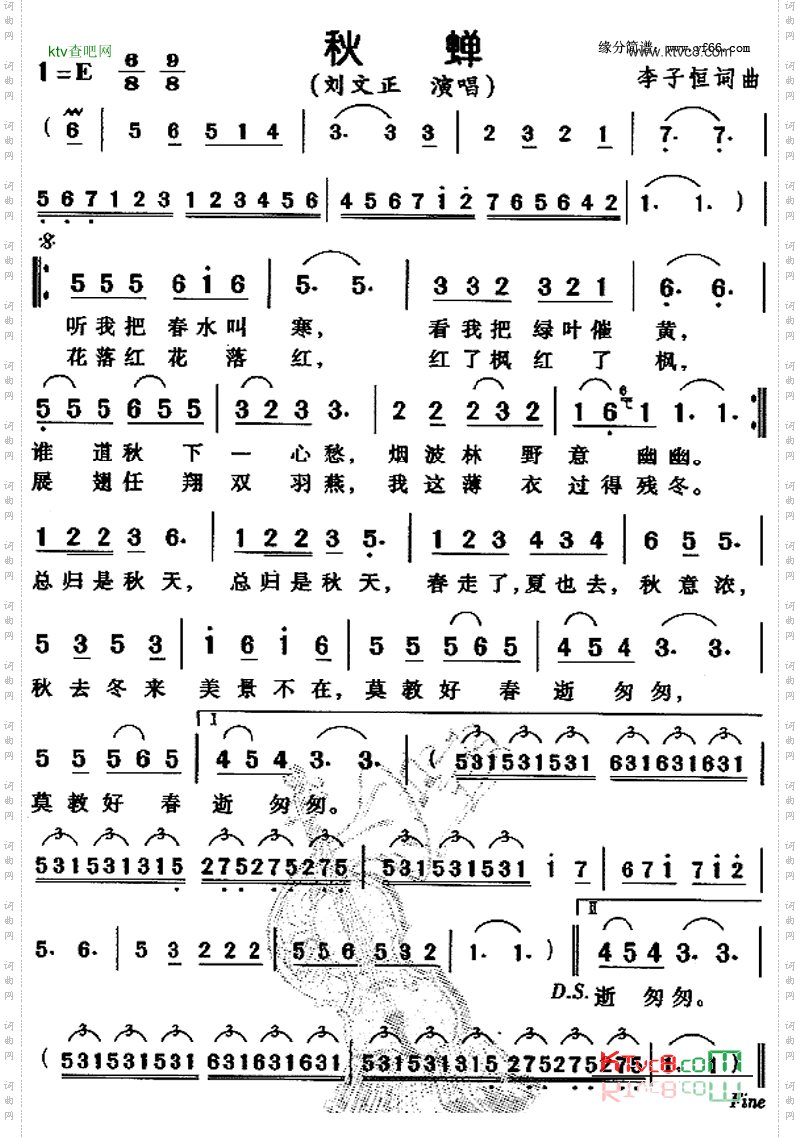 ktv查吧网
秋 蝉
缘分简谱: www.yf66.com
1=E 6/8 9/8
(刘文正 演唱)
李子恒词曲
( 6 | 5 6 5 1 4 | 3. 3. 3 3 | 2 3 2 1 | 7. 7. |
5 6 7 1 2 3 1 2 3 4 5 6 | 4 5 6 7 1 2 7 6 5 6 4 2 | 1. 1. ) |
5 5 5 6 1 6 | 5. 5. | 3 3 2 3 2 1 | 6. 6. |
听我把 春水叫 寒, 看我把 绿叶催 黄,
花落红 花 落 红, 红了枫 红 了 枫,
5 5 5 6 5 5 | 3 2 3 3 3. | 2 2 2 3 2 | 1 6 1 1. 1. :|
谁 道秋 下 一 心愁, 烟波林 野意 幽幽。
展 翅任 翔 双 羽燕, 我这薄 衣过得残冬。
1 2 2 3 6. | 1 2 2 3 5. | 3 2 3 4 3 4 | 6 5 5. |
总归是秋天, 总归是秋天, 春走了,夏也去, 秋意浓,
5 3 5 3 | 1 6 1 6 | 5 5 5 6 5 | 4 5 4 3. 3. |
秋去冬来 美景不在, 莫教好 春 逝 匆匆,
I
5 5 5 6 5 | 4 5 4 3. 3. | ( 531531531 631631631 |
莫教好 春 逝 匆匆。
531531315 275275275 | 531531531 1 7 | 6 7 1 7 1 2 |
II
5. 6. | 5 3 2 2 2 | 5 5 6 5 3 2 | 1. 1. ) | 4 5 4 3. 3. |
D.S. 逝 匆匆。
( 531531531 631631631 | 531531315 275275275 | 1. 1. )
KTvc8.com
Fine
词曲网